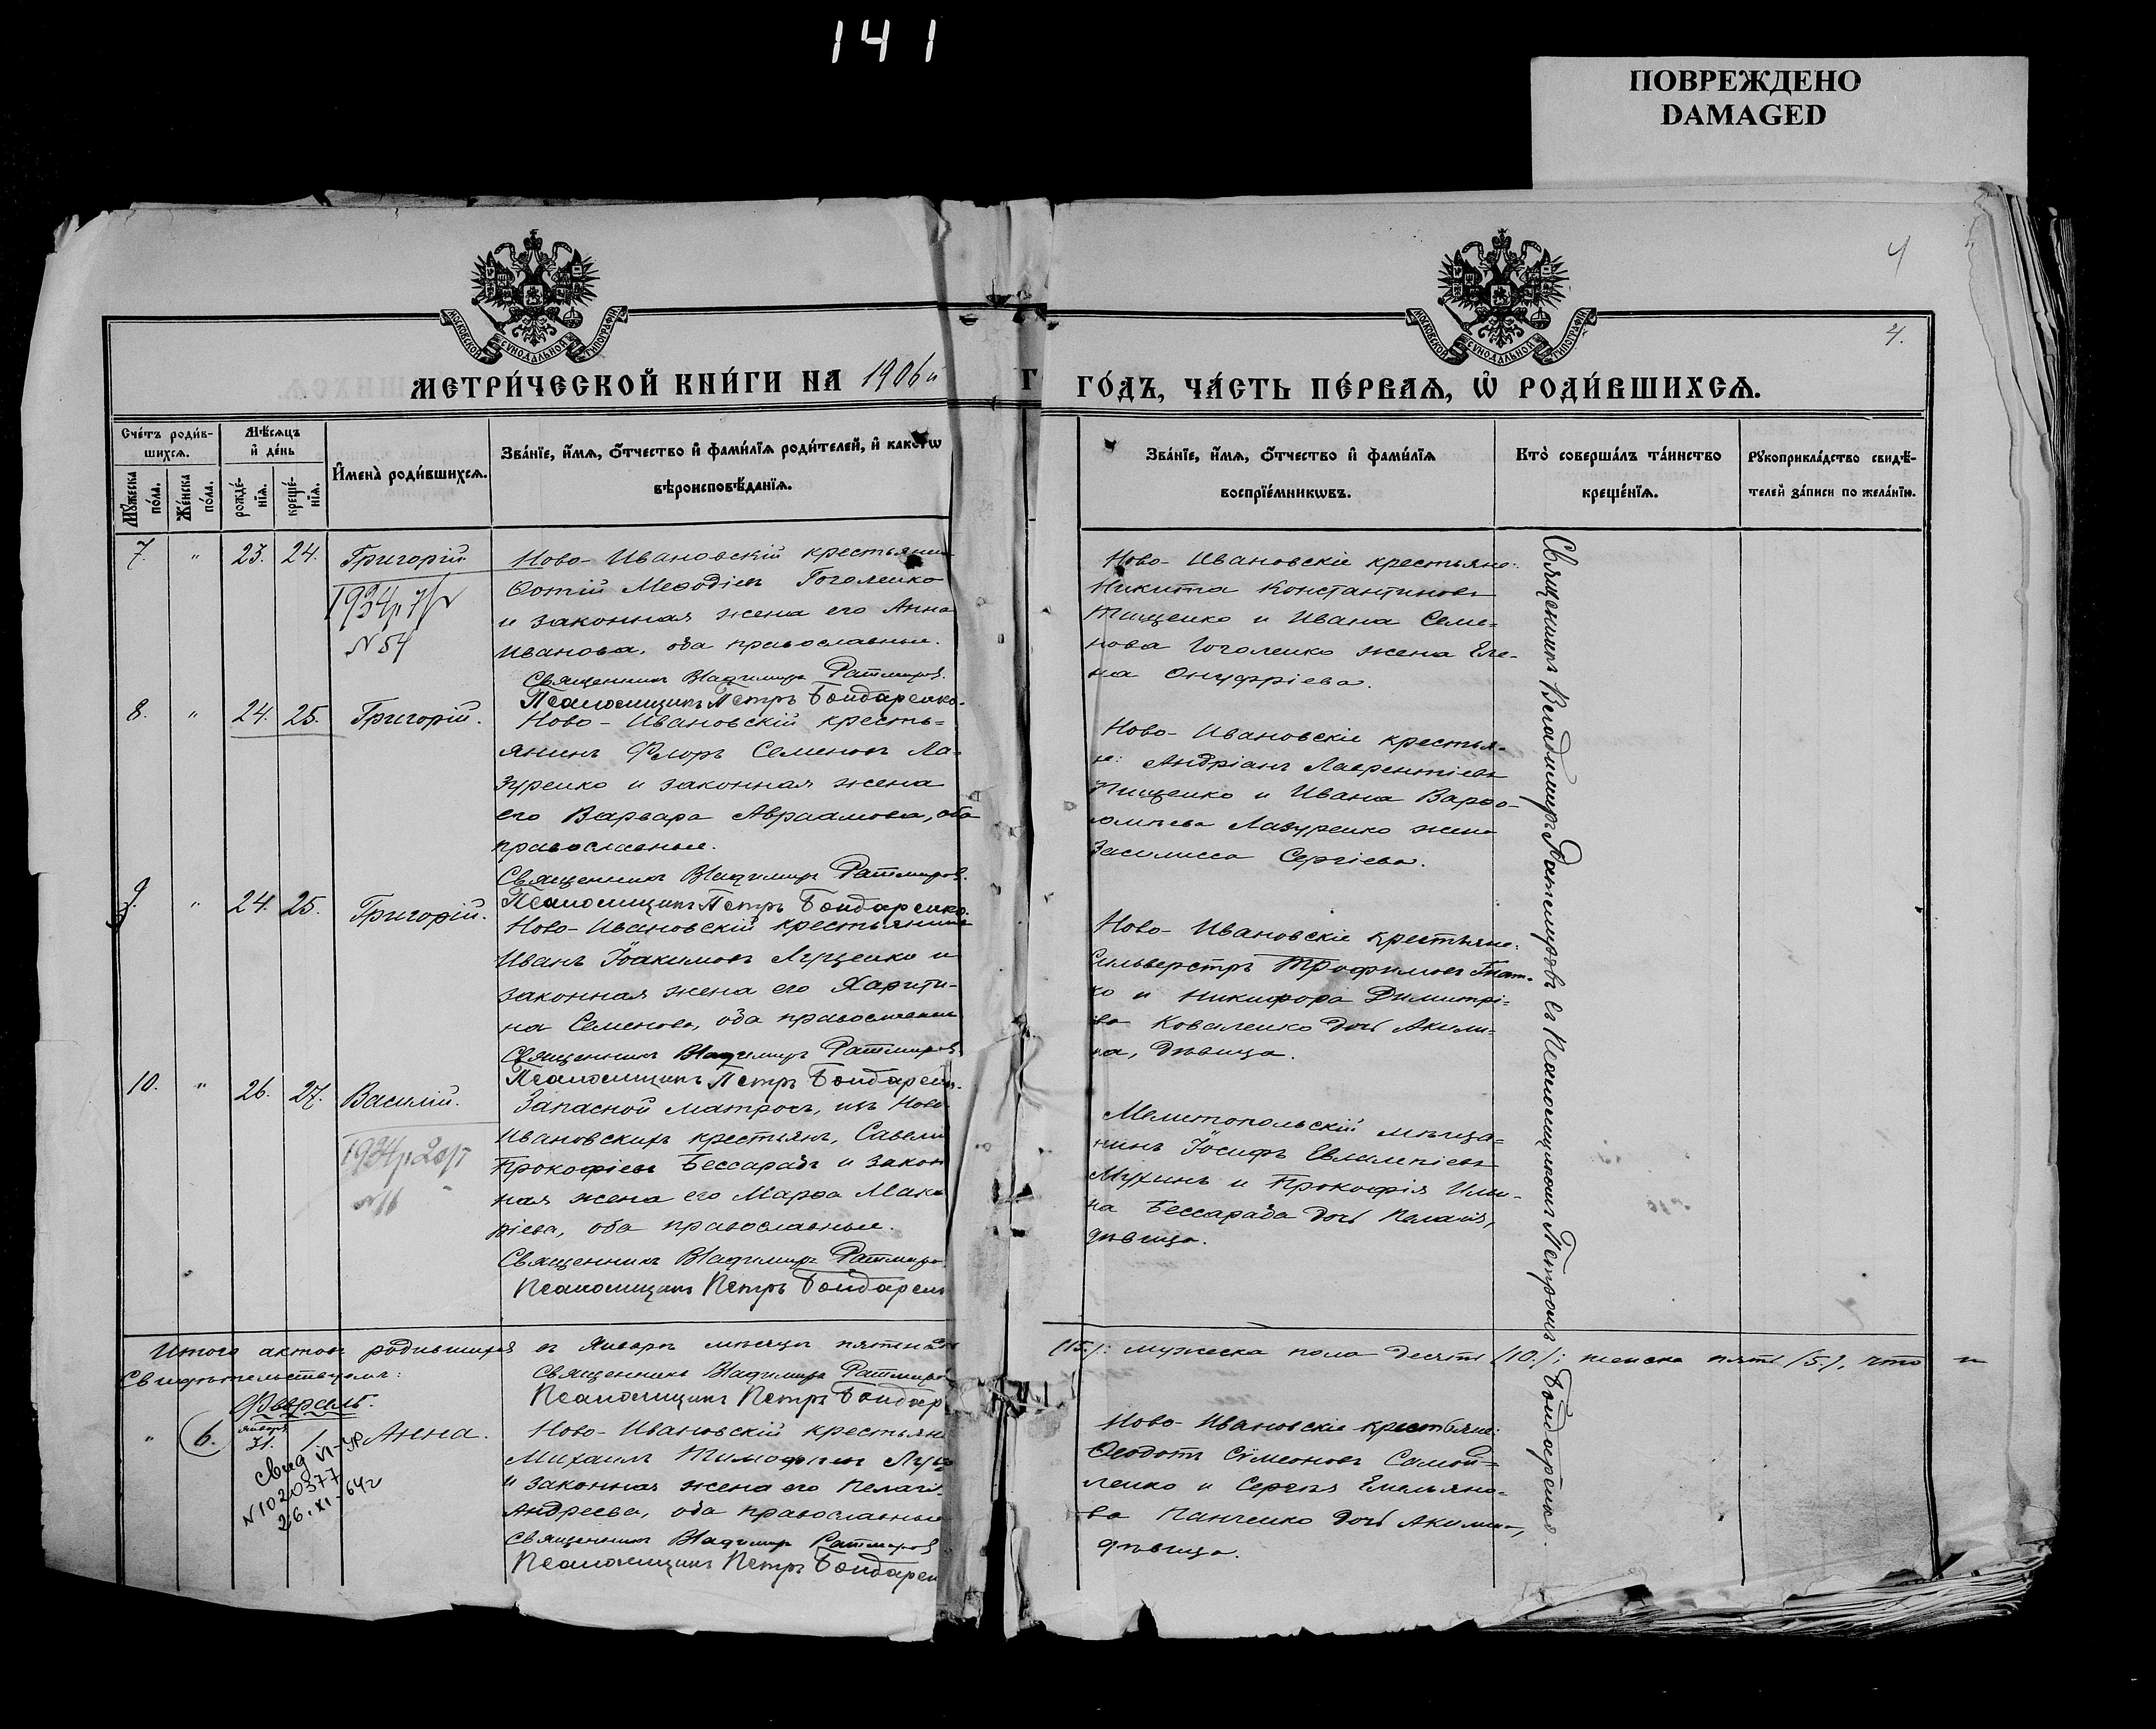 141
ПОВРЕЖДЕНО
DAMAGED
4
4.
МОСКОВСКОЙ СѴНОДАЛЬНОЙ ТИПОГРАФІИ
МОСКОВСКОЙ СѴНОДАЛЬНОЙ ТИПОГРАФІИ
МЕТРИ́ЧЕСКОЙ КНИ́ГИ НА 1906й
Г ГО́ДЪ, ЧА́СТЬ ПЕ́РВАѦ, Ѡ҆ РОДИ́ВШИХСѦ.
Сче́тъ роди́в-
шихсѧ.
Мꙋ́жеска
по́ла.
Же́нска
по́ла.
Мѣ́сѧцъ
и҆ де́нь
рожде́-
нїѧ.
креще́-
нїѧ.
И҆мена̀ роди́вшихсѧ.
Зва́нїе, и҆́мѧ, ѻ҆́тчество и҆ фами́лїѧ роди́телей, и҆ како́гѡ
вѣроисповѣ́данїѧ.
Зва́нїе, и҆́мѧ, ѻ҆́тчество и҆ фами́лїѧ
воспрїе́мникѡвъ.
Кто̀ соверша́лъ та́инство
креще́нїѧ.
Рꙋкоприкла́дство свидѣ́-
телей за́писи по жела́нїю.
7. " 23. 24. Григорій.
1934р
N 54
Ново-Ивановскій крестьянин
Фотій Меѳодіевъ Гоголенко
и законная жена его Анна
Иванова, оба православные.
Священникъ Владимиръ Ратмировъ.
Псаломщикъ Петръ Бондаренко.
Ново-Ивановскіе крестьяне:
Никита Константиновъ
Тищенко и Ивана Семе-
нова Гоголенко жена Еле-
на Онуфріева.
8. " 24. 25. Григорій.
Ново-Ивановскій кресть-
янинъ Флоръ Семеновъ Ла-
зуренко и законная жена
его Варвара Авраамова, оба
православные.
Священникъ Владимиръ Ратмировъ.
Псаломщикъ Петръ Бондаренко.
Ново-Ивановскіе крестья-
не: Андріанъ Лаврентіевъ
Тищенко и Ивана Варѳо-
ломѣева Лазуренко жена
Василисса Сергіева.
9. " 24. 25. Григорій.
Ново-Ивановскій крестьянинъ
Иванъ Іоакимовъ Луценко и
законная жена его Харити-
на Семенова, оба православные
Священникъ Владимиръ Ратмиров
Псаломщикъ Петръ Бондарен.
Ново-Ивановскіе крестьяне:
Сильверстръ Трофимовъ Гнат-
ко и Никифора Димитрі-
ева Коваленко дочь Акили-
на, дѣвица.
10. " 26. 27. Василій.
1934р
N 16
Запасной матросъ, изъ Ново
Ивановскихъ крестьянъ, Савелій
Прокофіевъ Бессарабъ и закон
ная жена его Марѳа Мака
ріева, оба православные.
Священникъ Владимиръ Ратмиро
Псаломщикъ Петръ Бондарен
Мелитопольскій мѣща-
нинъ Іосифъ Евлампіевъ
Мухинъ и Прокофія Или-
на Бессараба дочь Пелагія,
дѣвица.
Священникъ Владимиръ Ратмировъ съ Псаломщикомъ Петромъ Бондаренко.
Итого актовъ родившихся въ Январѣ мѣсяцѣ пятнад
(15.): мужеска пола десять (10.); женска пять (5.), что и
Свидѣтельствуемъ:
Священникъ Владимиръ Ратмиро
Псаломщикъ Петръ Бондар
Февраль.
" 6. Январь 31. 1 Анна.
Свид
N 1020377
26.XI-64г
Ново-Ивановскій крестьян
Михаилъ Тимофѣевъ Луц
и законная жена его Пелагі
Андреева, оба православные
Священникъ Владимиръ Ратмиров
Псаломщикъ Петръ Бондарен
Ново-Ивановскіе крестьяне:
Ѳеодотъ Сѵмеоновъ Самой-
ленко и Сергѣя Емельяно-
ва Панченко дочь Акилина,
дѣвица.